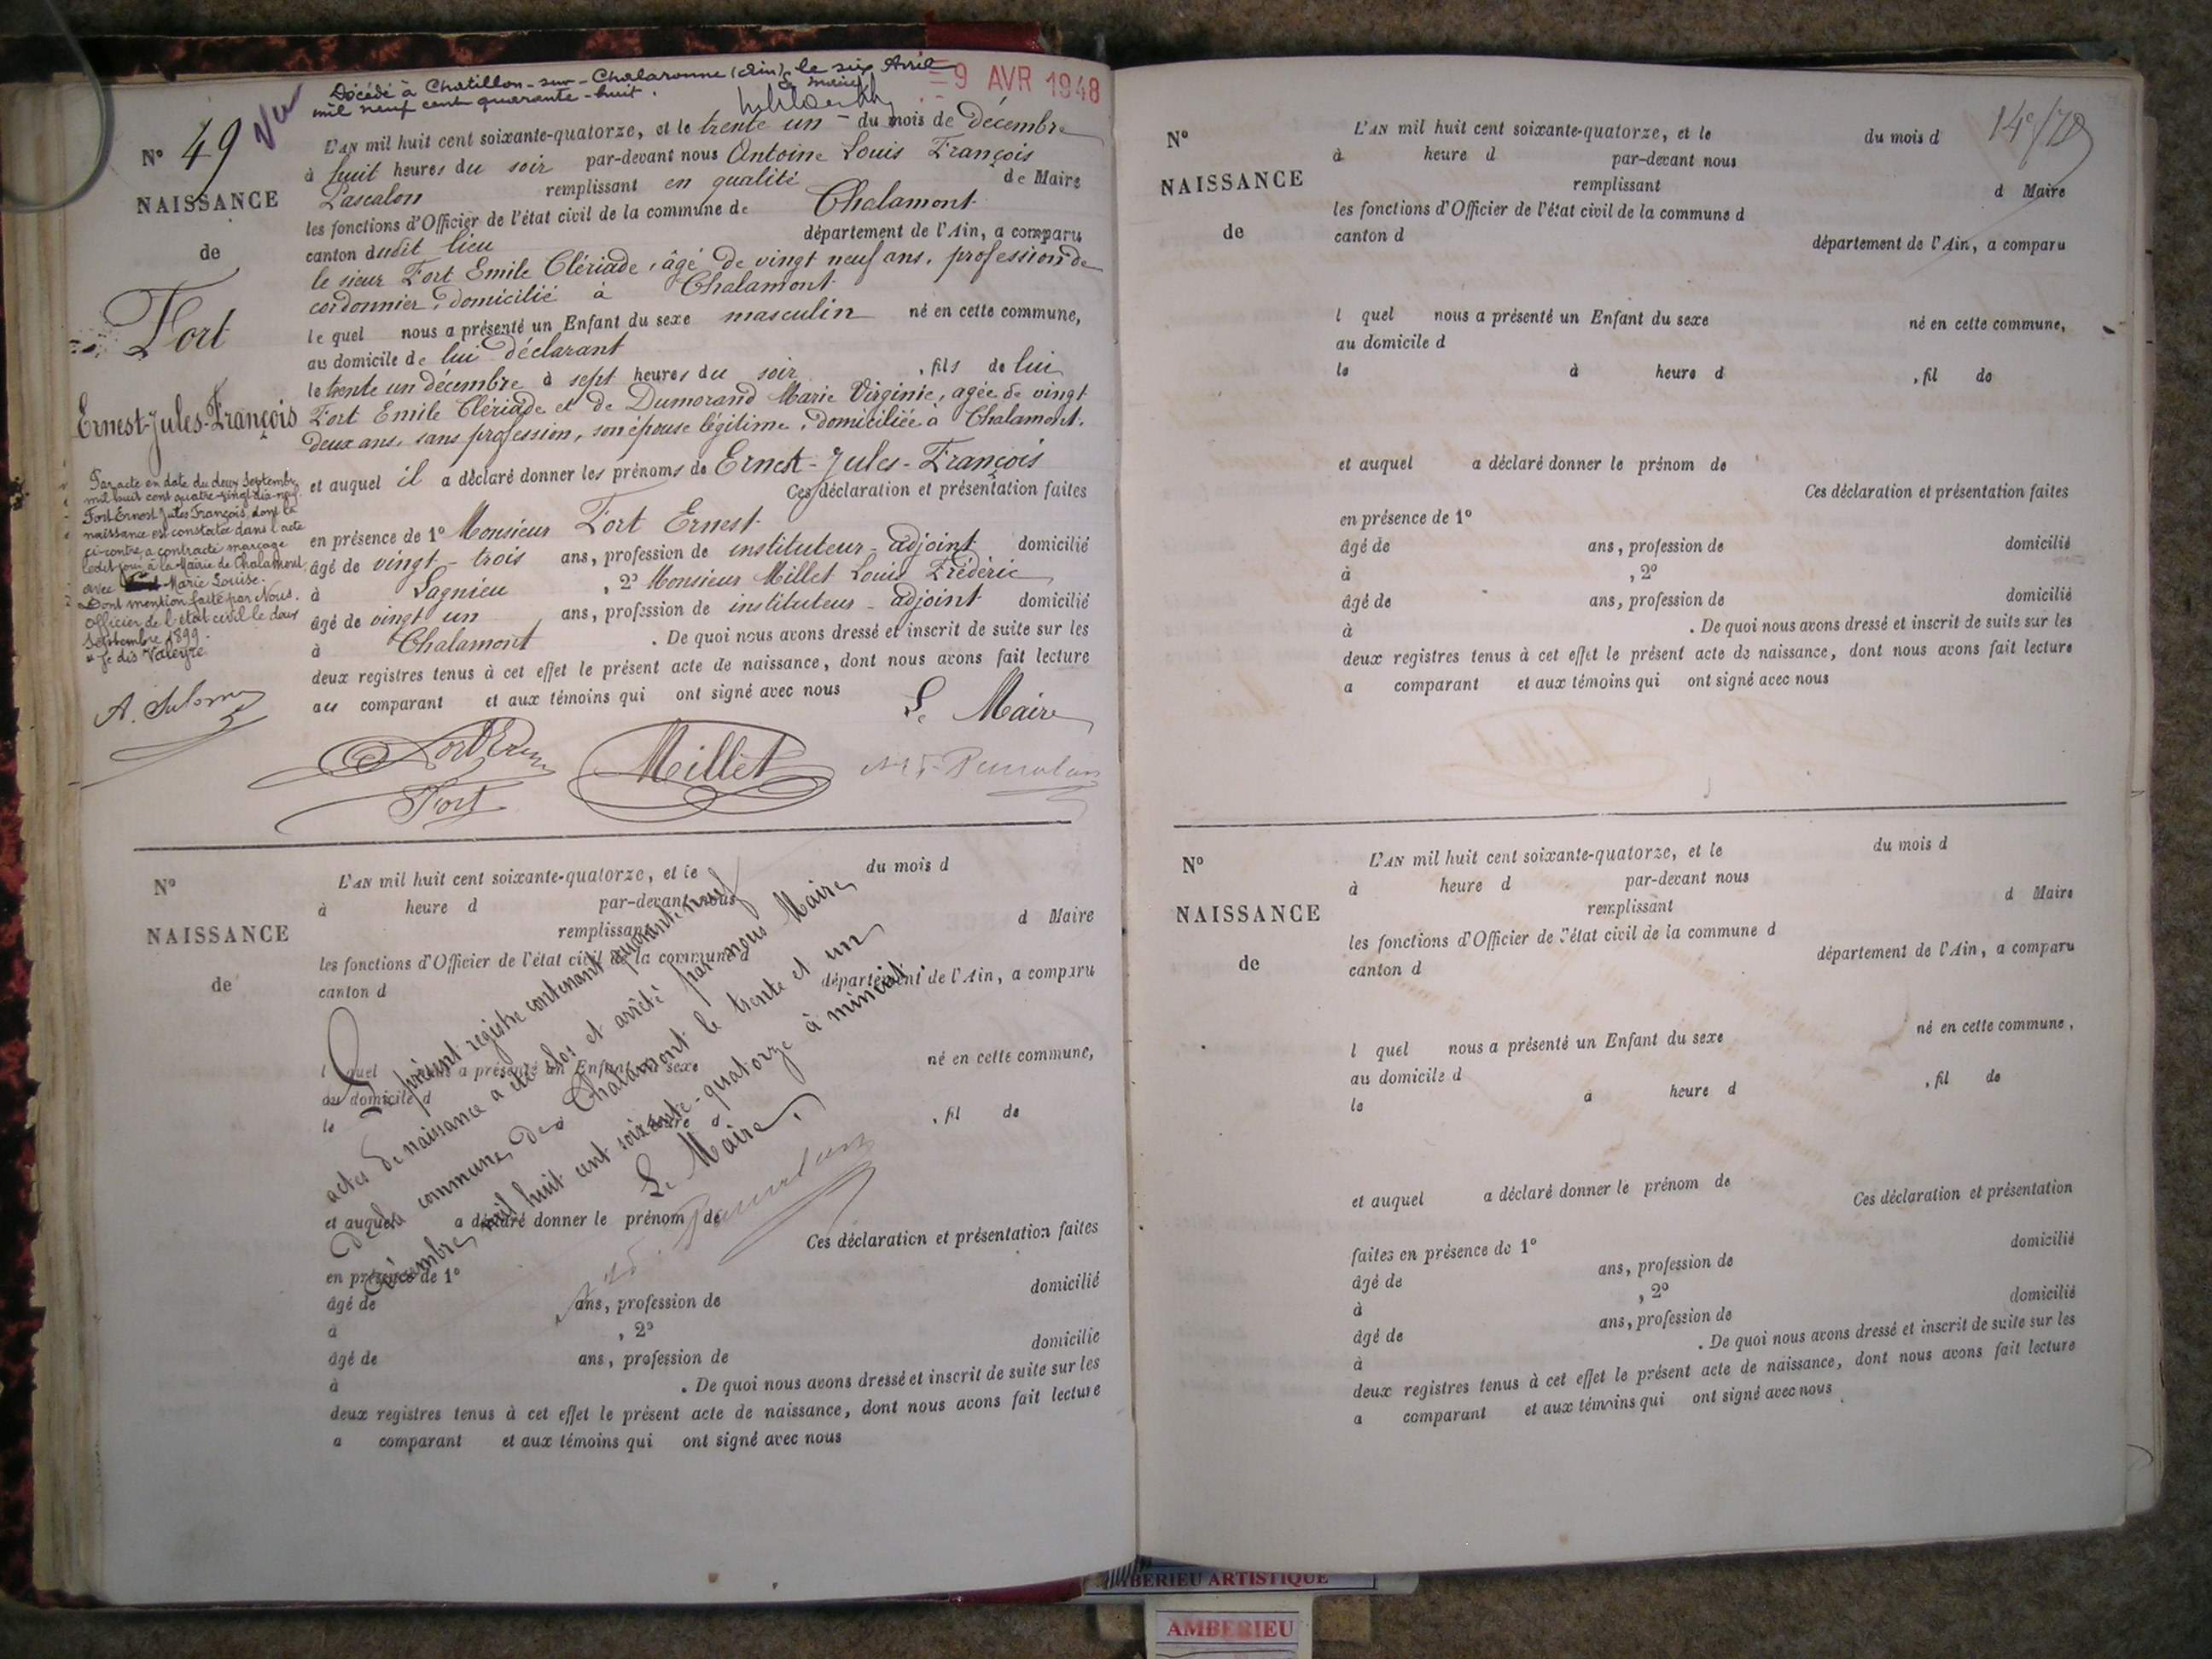 Décédé à Chatillon-sur-Chalaronne (Ain), le six Avril
mil neuf cent quarante-huit.
Le Maire
9 AVR 1948
Vu
N° 49
NAISSANCE
de
Fort
Ernest-Jules-François
L'AN mil huit cent soixante-quatorze, et le trente un - du mois de décembre
à huit heures du soir par-devant nous Antoine Louis François
Pascalon remplissant en qualité de Maire
les fonctions d'Officier de l'état civil de la commune de Chalamont
canton dudit lieu département de l'Ain, a comparu
le sieur Fort Emile Clériade, âgé de vingt neuf ans, profession de
cordonnier, domicilié à Chalamont
lequel nous a présenté un Enfant du sexe masculin né en cette commune,
au domicile de lui déclarant
le trente un décembre à sept heures du soir, fils de lui
Fort Emile Clériade et de Dumorand Marie Virginie, agée de vingt
deux ans, sans profession, son épouse légitime, domiciliée à Chalamont.
et auquel il a déclaré donner les prénoms de Ernest-Jules-François
Ces déclaration et présentation faites
en présence de 1° Monsieur Fort Ernest
âgé de vingt-trois ans, profession de instituteur-adjoint domicilié
à Lagnieu, 2° Monsieur Millet Louis Frédéric
âgé de vingt un ans, profession de instituteur-adjoint domicilié
à Chalamont. De quoi nous avons dressé et inscrit de suite sur les
deux registres tenus à cet effet le présent acte de naissance, dont nous avons fait lecture
au comparant et aux témoins qui ont signé avec nous
Le Maire
Fort
Millet
Par acte en date du deux Septembre
mil huit cent quatre-vingt-dix-neuf
Fort Ernest Jules François, dont la
naissance est constatée dans l'acte
ci-contre, a contracté mariage
ledit jour à la Mairie de Chalamont
avec Marie Louise.
Dont mention faite par Nous,
Officier de l'état civil le deux
Septembre 1899.
* Je dis Valeyre
N°
NAISSANCE
de
L'AN mil huit cent soixante-quatorze, et le du mois d
à heure d par-devant nous
remplissant d Maire
les fonctions d'Officier de l'état civil de la commune d
canton d département de l'Ain, a comparu
l quel nous a présenté un Enfant du sexe né en cette commune,
au domicile d
le heure d , fil de
et auquel a déclaré donner le prénom de
Ces déclaration et présentation faites
en présence de 1°
âgé de ans, profession de domicilié
à , 2°
âgé de ans, profession de domicilié
à . De quoi nous avons dressé et inscrit de suite sur les
deux registres tenus à cet effet le présent acte de naissance, dont nous avons fait lecture
a comparant et aux témoins qui ont signé avec nous
Le présent registre contenant quarante neuf
actes de naissance a été clos et arrêté par nous Maire
de la commune de Chalamont le trente et un
décembre mil huit cent soixante-quatorze à minuit.
Le Maire,
14e/78
N°
NAISSANCE
de
L'AN mil huit cent soixante-quatorze, et le du mois d
à heure d par-devant nous
remplissant d Maire
les fonctions d'Officier de l'état civil de la commune d
canton d département de l'Ain, a comparu
l quel nous a présenté un Enfant du sexe né en cette commune,
au domicile d
le à heure d , fil de
et auquel a déclaré donner le prénom de
Ces déclaration et présentation faites
en présence de 1°
âgé de ans, profession de domicilié
à , 2°
âgé de ans, profession de domicilié
à . De quoi nous avons dressé et inscrit de suite sur les
deux registres tenus à cet effet le présent acte de naissance, dont nous avons fait lecture
a comparant et aux témoins qui ont signé avec nous
N°
NAISSANCE
de
L'AN mil huit cent soixante-quatorze, et le du mois d
à heure d par-devant nous
remplissant d Maire
les fonctions d'Officier de l'état civil de la commune d
canton d département de l'Ain, a comparu
l quel nous a présenté un Enfant du sexe né en cette commune,
au domicile d
le à heure d , fil de
et auquel a déclaré donner le prénom de
Ces déclaration et présentation
faites en présence de 1°
âgé de ans, profession de domicilié
à , 2°
âgé de ans, profession de domicilié
à . De quoi nous avons dressé et inscrit de suite sur les
deux registres tenus à cet effet le présent acte de naissance, dont nous avons fait lecture
a comparant et aux témoins qui ont signé avec nous
BERIEU ARTISTIQUE
AMBERIEU